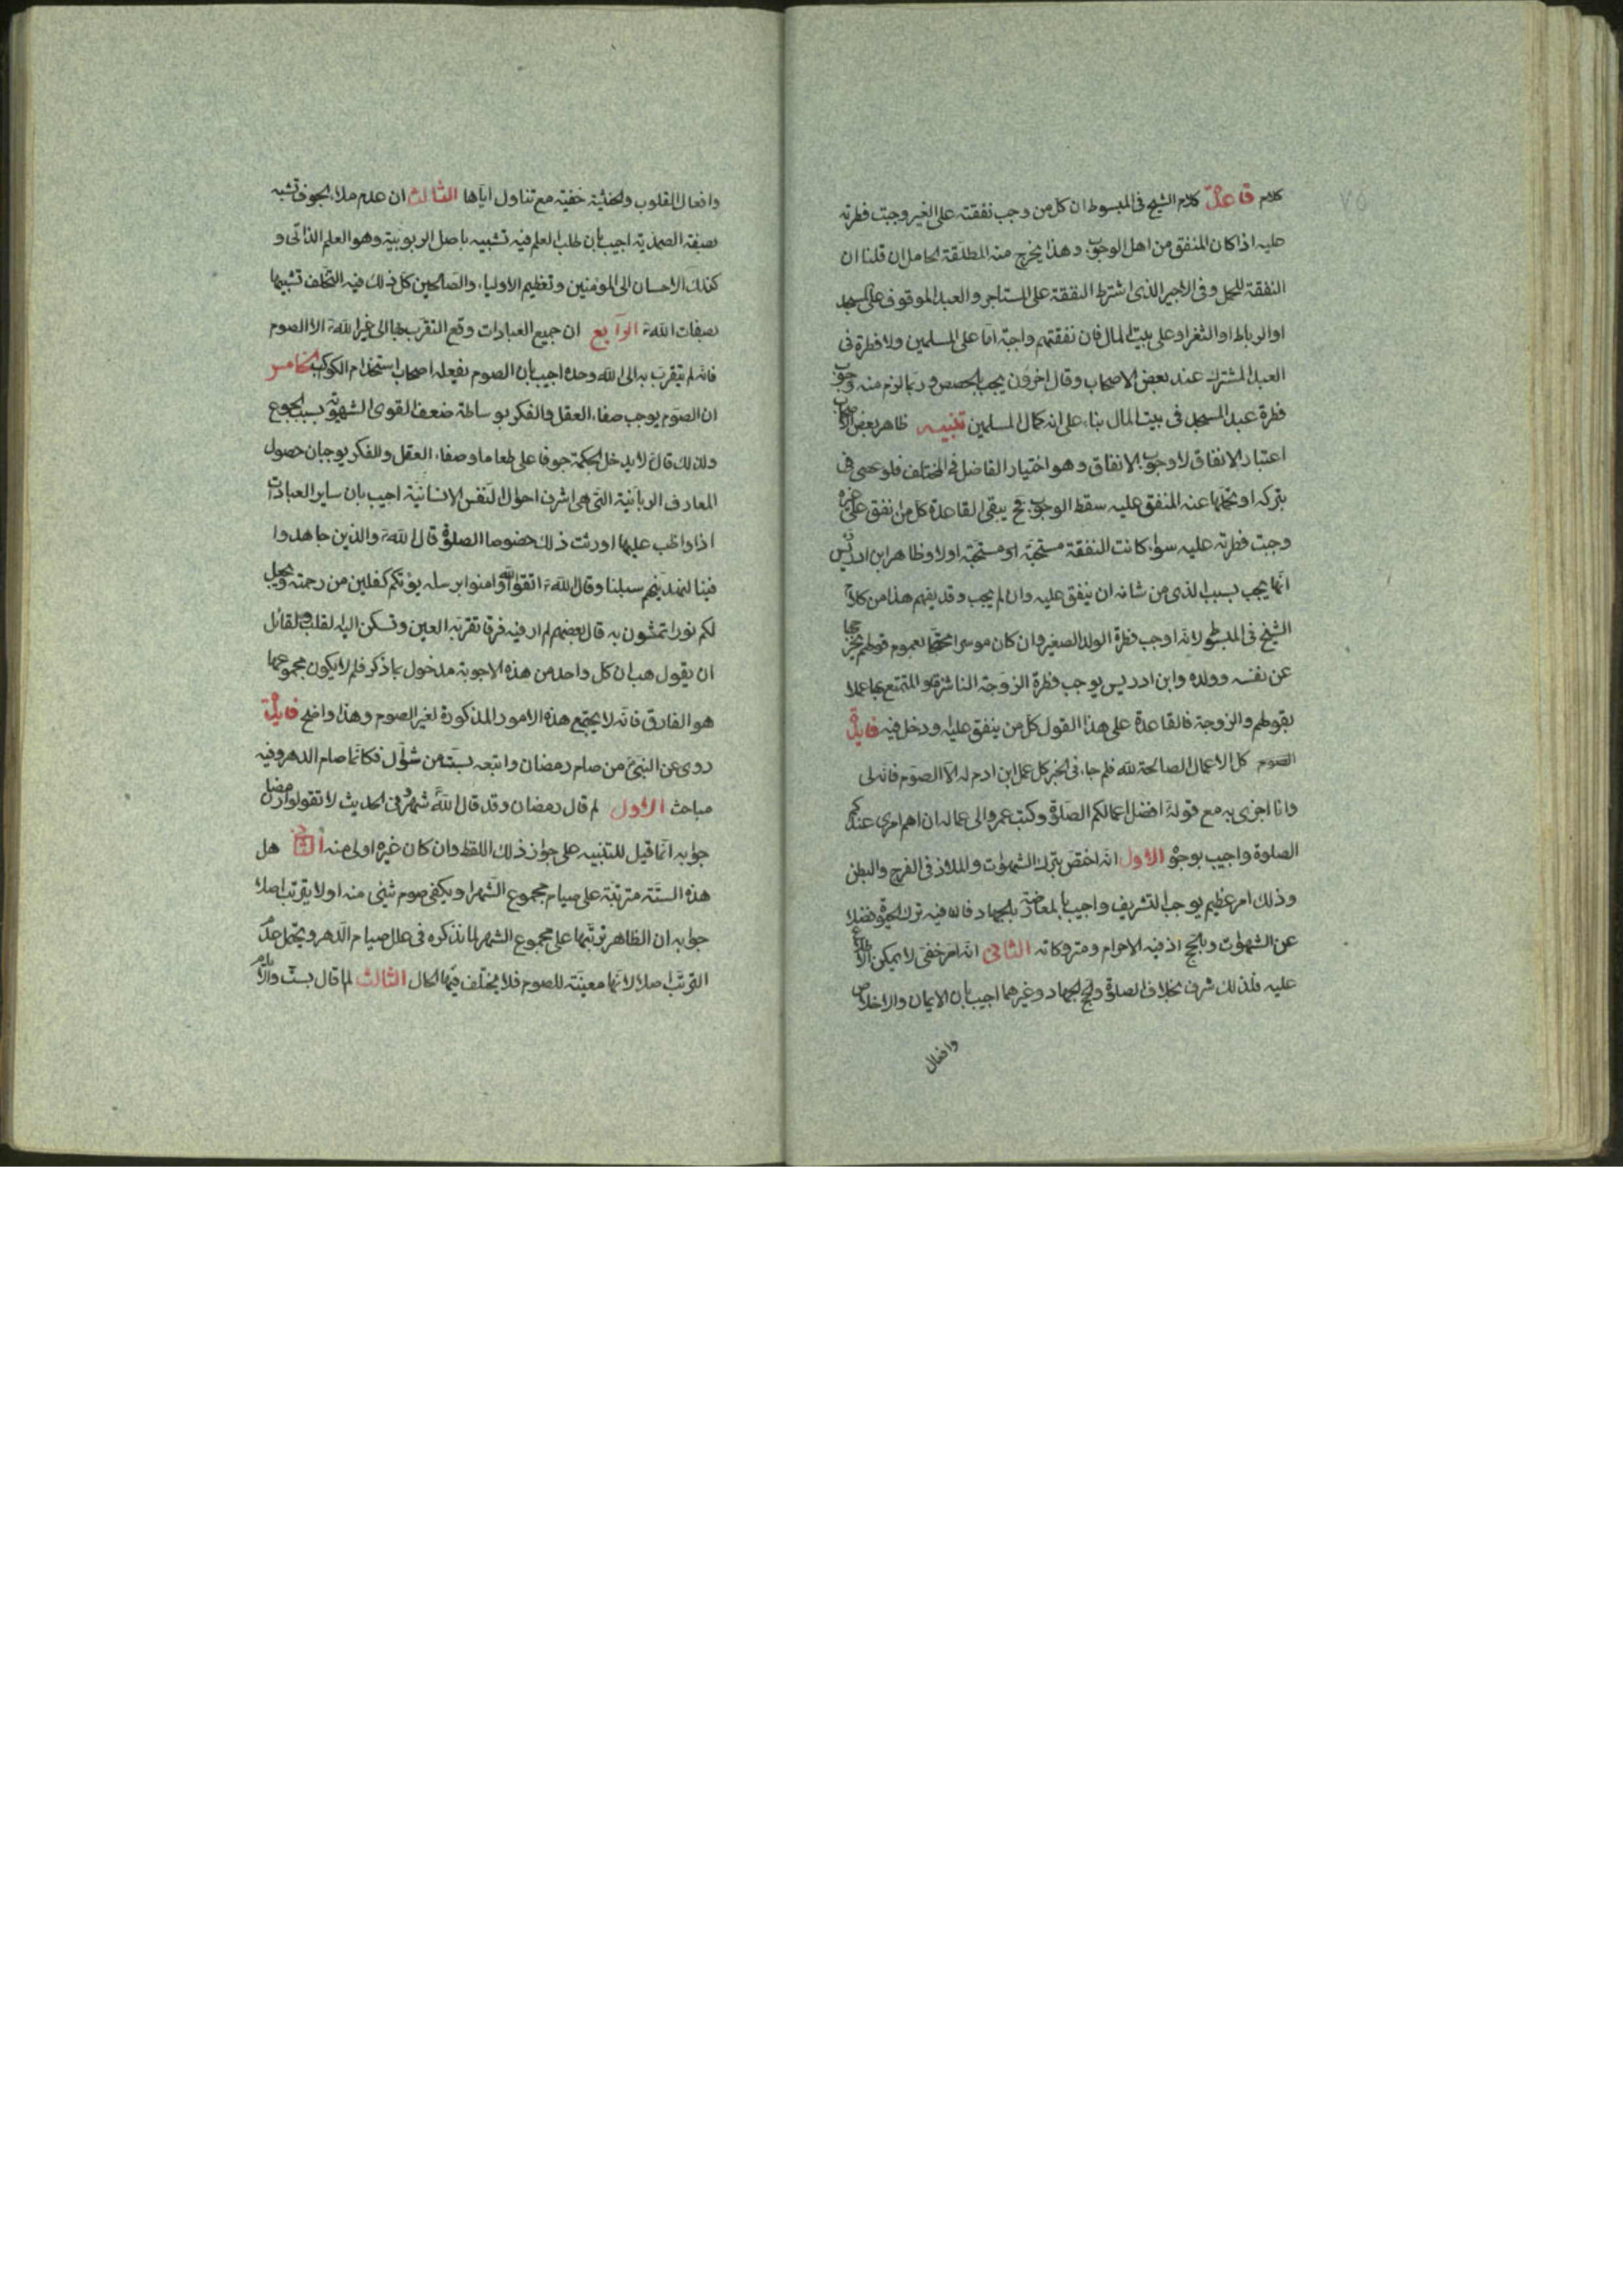 ٧٥
كلام قاعدة كلام الشيخ فى المبسوط ان كل من وجب نفقته على الغير وجبت فطرته
عليه اذا كان المنفق من اهل الوجوب وهذا يخرج منه المطلقة الحامل ان قلنا ان
النفقة للحمل وفى الاجير الذى اشترط النفقة على المستاجر والعبد الموقوف على المسجد
او الرباط او الثغر او على بيت المال فان نفقتهم واجبة اما على المسلمين ولا فطرة فى
العبد المشترك عند بعض الاصحاب وقال اخرون يجب بالحصص وربما لزم منه وجوب
فطرة عبد المسجد فى بيت المال بناء على انه كمال المسلمين تنبيه ظاهر بعض الاصحاب
اعتبار الانفاق لا وجوب الانفاق وهو اختيار الفاضل فى المختلف فلو عصى فى
بتركه او تحملها عنه المنفق عليه سقط الوجوب فح يبقى القاعدة كل من انفق على غيره
وجبت فطرته عليه سواء كانت النفقة مستحقة او مستحبة اولا وظاهر ابن ادريس
انها يجب بسبب الذى من شانه ان ينفق عليه وان لم يجب وقد يفهم هذا من كلام
الشيخ فى المبسوط لانه اوجب فطرة الولد الصغير وان كان موسرا محتجا لعموم قولهم يخرجها
عن نفسه وولده وابن ادريس يوجب فطرة الزوجة الناشزة والمتمتع بها عملا
بقولهم والزوجة فالقاعدة على هذا القول كل من ينفق عليه ودخل فيه فايدة
الصوم كل الاعمال الصالحة لله فلم جاء فى الخبر كل عمل ابن ادم له الا الصوم فانه لى
وانا اجزى به مع قوله افضل اعمالكم الصلوة وكتب عمر والى عماله ان اهم امرى عندكم
الصلوة واجيب بوجوه الاول انه اختص بترك الشهوات والملاذ فى الفرج والبطن
وذلك امر عظيم يوجب التشريف واجيب بالمعارضة بالجهاد فان فيه ترك الحيوة فضلا
عن الشهوات وبالحج اذ فيه الاحرام ومتروكاته الثانى انه امر خفى لا يمكن الاطلاع
عليه فلذلك شرف بخلاف الصلوة والحج والجهاد وغيرهما اجيب بان الايمان والاخلاص
وافعال
وافعال القلوب والخشية خفية مع تناول اياها الثالث ان عدم ملاء الجوف تشبه
بصفة الصمدية اجيب بان طلب العلم فيه تشبيه باصل الربوبية وهو العلم الذاتى و
كذلك الاحسان الى المؤمنين وتعظيم الاولياء والصالحين كل ذلك فيه التخلف تشبيها
بصفات الله الرابع ان جميع العبادات وقع التقرب بها الى غير الله الا الصوم
فانه لم يتقرب به الى الله وحده اجيب بان الصوم يفعله اصحاب استخدام الكواكب الخامس
ان الصوم يوجب صفاء العقل والفكر بوساطة ضعف القوى الشهوية بسبب الجوع
ولذلك قال لا يدخل الحكمة جوفا على طعاما وصفاء العقل والفكر يوجبان حصول
المعارف الربانية التى هى اشرف احوال النفس الانسانية اجيب بان ساير العبادات
اذا واظب عليها اورثت ذلك خصوصا الصلوة قال الله والذين جاهدوا
فينا لنهدينهم سبلنا وقال الله اتقوا الله وامنوا برسله يؤتكم كفلين من رحمته ويجعل
لكم نورا تمشون به قال بعضهم لم ار فيه فرقا تقر به العين وتسكن اليه القلب ولقائل
ان يقول هب ان كل واحد من هذه الاجوبة مدخول بما ذكر فلم لا يكون مجموعها
هو الفارق فانه لا يجتمع هذه الامور المذكورة لغير الصوم وهذا واضح فايدة
روى عن النبى من صام رمضان واتبعه بست من شوال فكانما صام الدهر وفيه
مباحث الاول لم قال رمضان وقد قال الله شهر وفى الحديث لا تقولوا رمضان
جوابه انما قيل للتنبيه على جواز ذلك اللفظ وان كان غيره اولى منه الثانى هل
هذه الستة مترتبة على صيام مجموع الشهر او يكفى صوم شئى منه اولا يترتب اصلا
جوابه ان الظاهر ترتبها على مجموع الشهر لما نذكره فى علل صيام الدهر ويحتمل عدم
الترتب اصلا لانها معينة للصوم فلا يختلف فيها الحال الثالث لم قال بست والايام